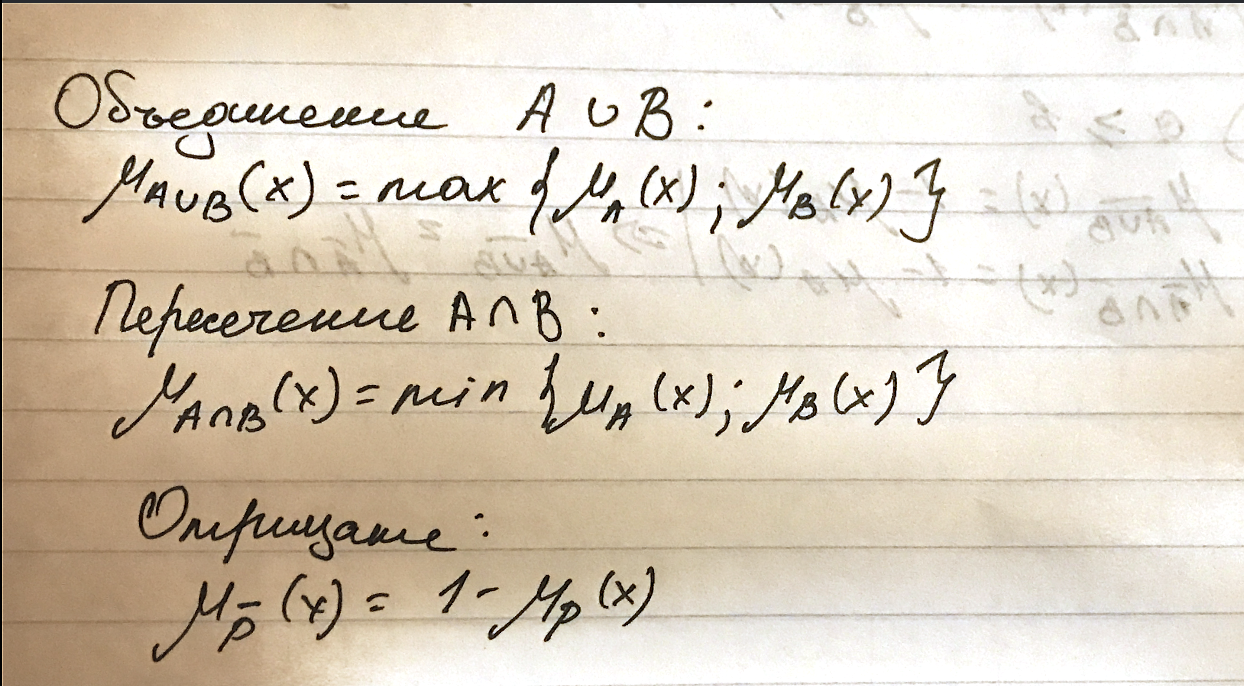 Объединение A ∪ B:
μ_{A∪B}(x) = max {μ_A(x); μ_B(x)}
Пересечение A∩B:
μ_{A∩B}(x) = min {μ_A(x); μ_B(x)}
Отрицание:
μ_{p̄}(x) = 1 - μ_p(x)